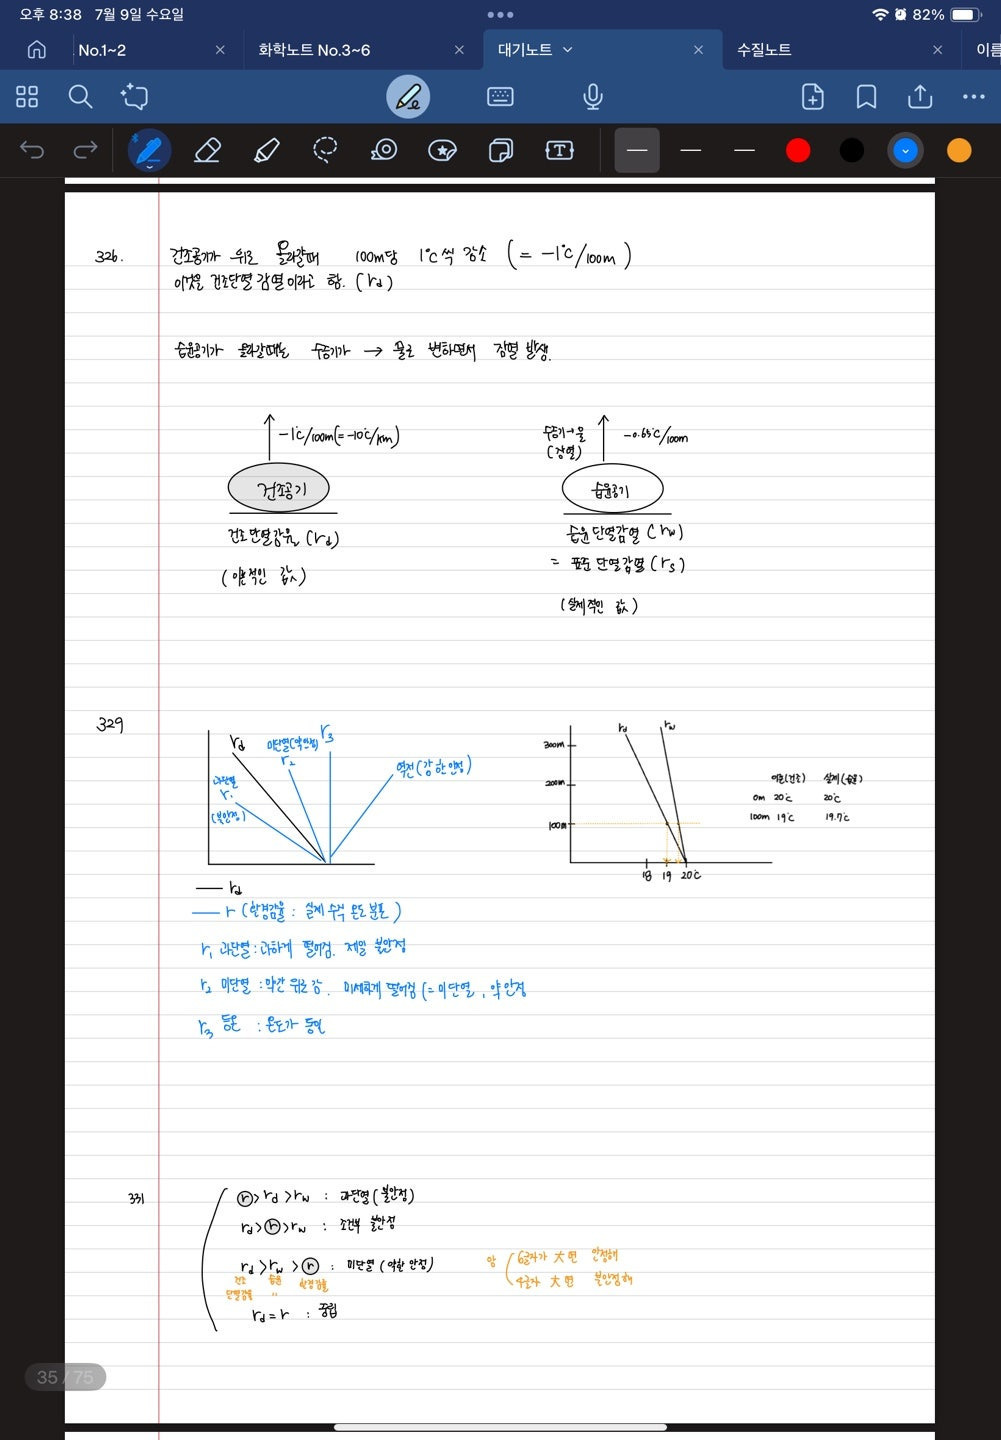 오후 8:38 7월 9일 수요일
82%
No.1~2
화학노트 No.3~6
대기노트
수질노트
이름
326.
건조공기가 위로 올라갈때 100m당 1℃씩 감소 (= -1℃/100m)
이것을 건조단열감열이라고 함. (rd)
습윤공기가 올라갈때는 수증기가 → 물로 변하면서 잠열 발생.
-1℃/100m(=-10℃/km)
건조공기
건조단열감율 (rd)
(이론적인 값)
수증기→물
(잠열)
-0.65℃/100m
습윤공기
습윤단열감열 (rw)
= 표준 단열감열 (rs)
(실제적인 값)
329
rd
미단열(약안정)
r2
r3
역전(강한안정)
과단열
r1
(불안정)
— rd
— r (환경감율 : 실제 수직 온도 분포)
r1 과단열 : 과하게 떨어짐. 제일 불안정
r2 미단열 : 약간 위로 감. 미세하게 떨어짐 (=미단열, 약안정
r3 등온 : 온도가 동일
rd rw
300m
200m
100m
18 19 20℃
이론(건조) 실제(습윤)
0m 20℃ 20℃
100m 19℃ 19.7℃
331
r > rd > rw : 과단열(불안정)
rd > r > rw : 조건부 불안정
rd > rw > r : 미단열 (약한 안정)
건조 습윤 환경감율
단열감율 〃
rd = r : 중립
암 6글자가 大 면 안정해
4글자 大 면 불안정해
35 / 75